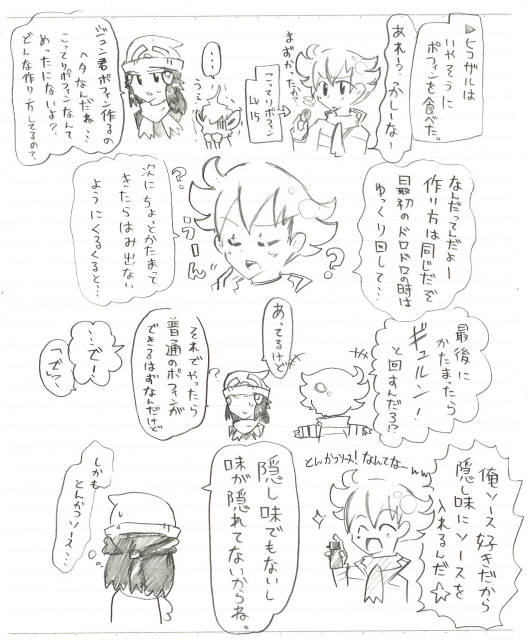 ▶ヒコザルは
いやそうに
ポフィンを食べた。
あれー?おかしーなー
まずかったか?
こってりポフィン
Lv15
…
うぇ
ジュン君ポフィン作るの
ヘタなんだね…
こってりポフィンなんて
めったにないよ?
どんな作り方してるの?
なんだってんだよー
作り方は同じだぞ
最初のドロドロの時は
ゆっくり回して…
?
?
うーん
次にちょっとかたまって
きたらはみ出ない
ようにくるくると…
最後に
かたまったら
ギュルン!
と回すんだろ!?
あってるけど
?
それでやったら
普通のポフィンが
できるはずなんだけど
…でー
「で」?
俺ソース好きだから
隠し味にソースを
入れるんだ☆
とんかつソース!なんてなーww
隠し味でもないし
味が隠れてないからね。
しかも
とんかつソース…